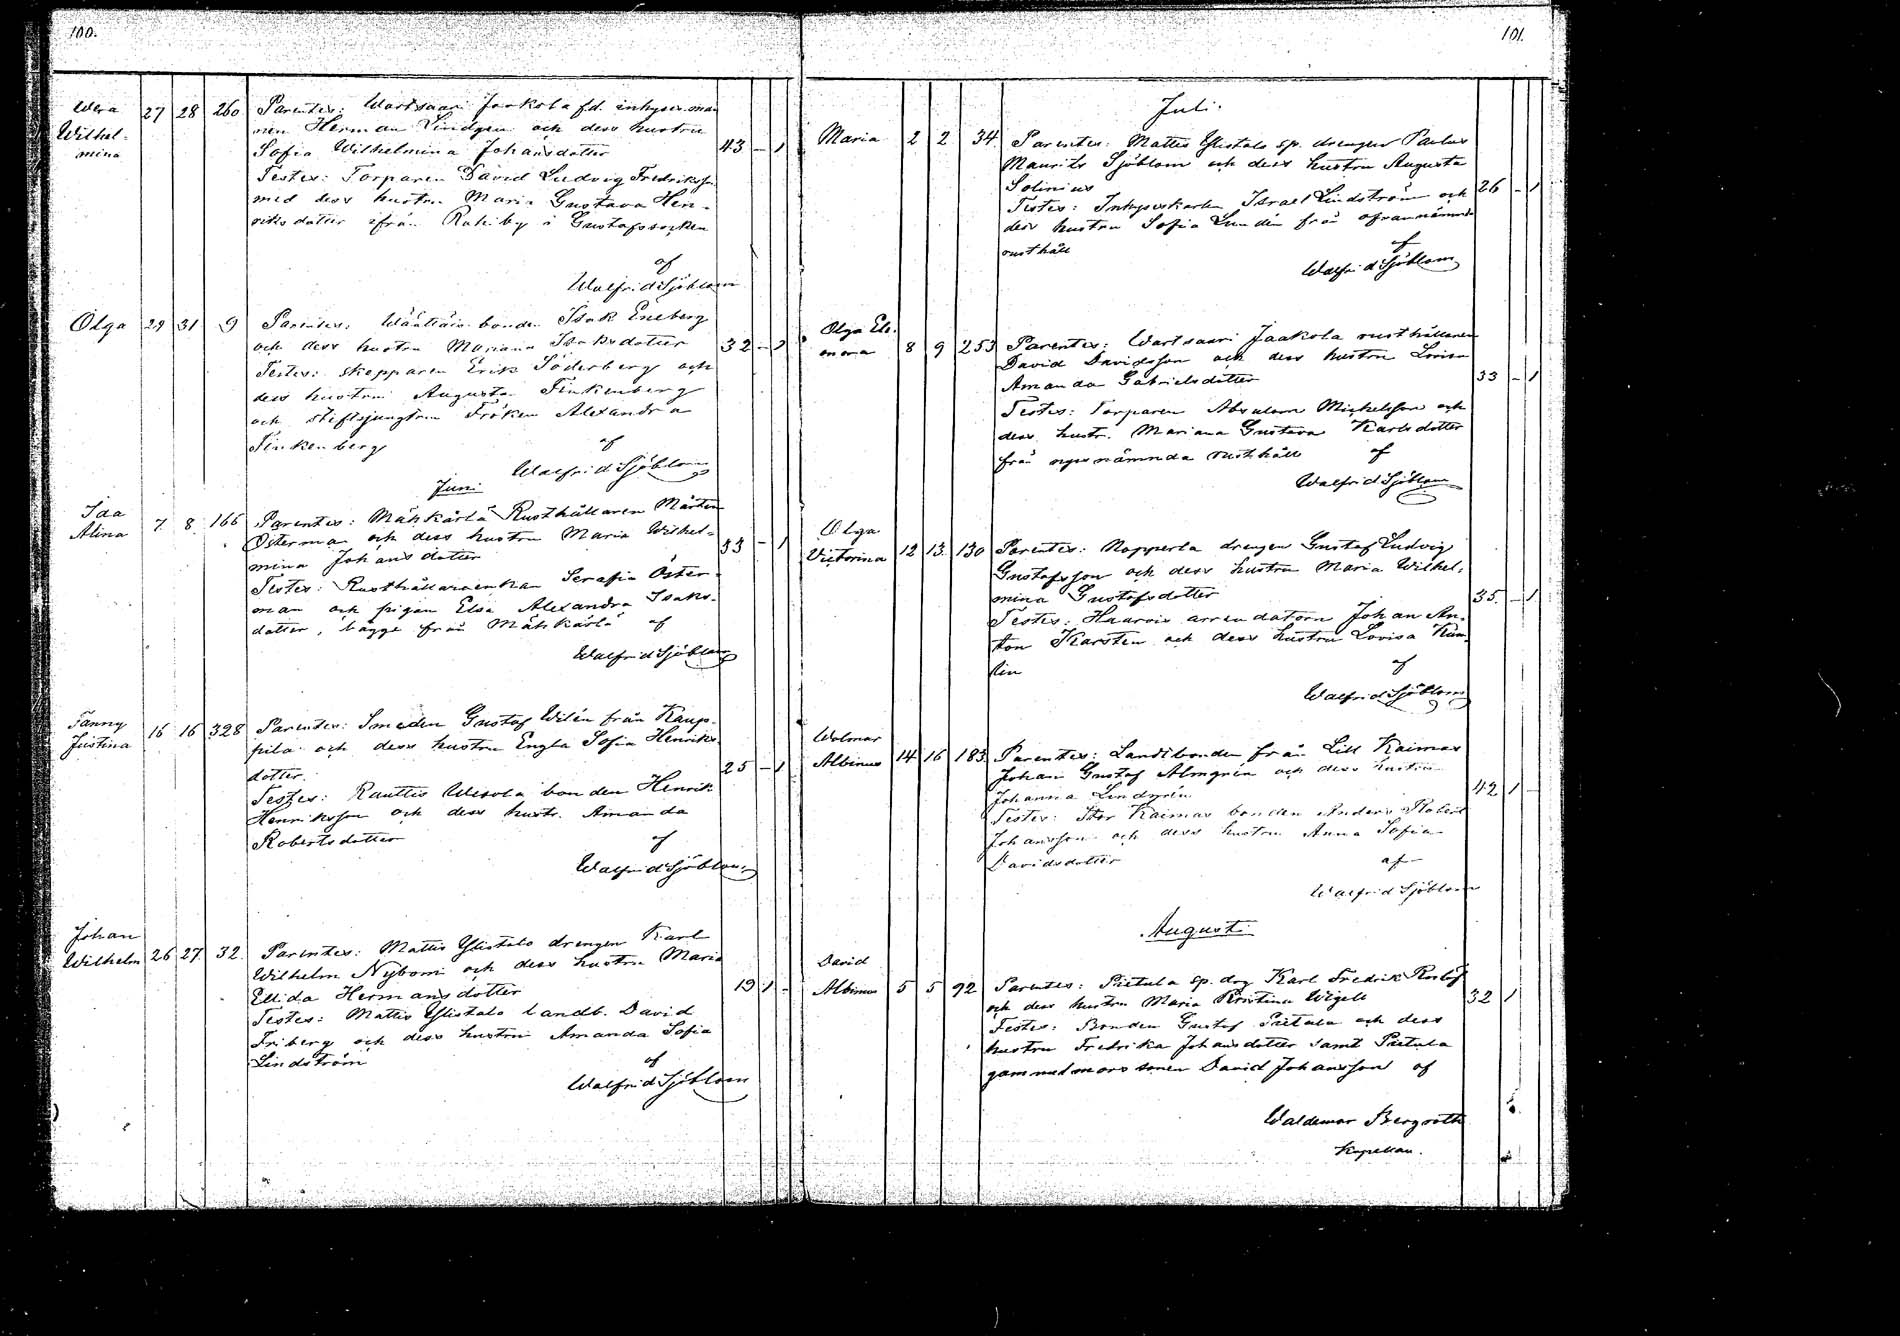 100.
Wera Wilhel-
mina
27 28 260
Parentes: Wartsaari Jaakola f.d. inhyses man
nen Herman Lindgren och dess hustru
Sofia Wilhelmina Johansdotter
43 – 1
Testes: Torparen David Ludvig Fredriksson
med dess hustru Maria Gustava Hen-
riksdotter ifrån Rahiby i Gustafs socken
af
Walfrid Sjöblom
Olga 29 31 9
Parentes: bonden Isak Eneberg
och dess hustru Mariana Isaksdotter
32 – 1
Testes: skepparen Erik Söderberg och
dess hustru Augusta Finkenberg
och stiftsjungfrun Fröken Alexandra
Finkenberg
af
Walfrid Sjöblom
Juni
Ida
Alina
7 8 166
Parentes: Mähkärlä Rusthållaren Mårten
Österman och dess hustru Maria Wilhel-
mina Johansdotter
33 – 1
Testes: Rusthållareenkan Serafia Öster-
man och pigan Elsa Alexandra Isaks-
dotter, bägge från Mähkärlä af
Walfrid Sjöblom
Fanny
Justina
16 16 328
Parentes: Smeden Gustaf Wilén från Kaup-
pila och dess hustru Engla Sofia Henriks-
dotter
25 – 1
Testes: Rauttis bonden Henrik
Henriksson och dess hustr. Amanda
Robertsdotter
af
Walfrid Sjöblom
Johan
Wilhelm
26 27 32
Parentes: Mattis Ylistalo drengen Karl
Wilhelm Nybom och dess hustru Maria
Ellida Hermansdotter
19 1 –
Testes: Mattis Ylistalo landb. David
Friberg och dess hustru Amanda Sofia
Lindström
af
Walfrid Sjöblom
101.
Juli.
Maria 2 2 34
Parentes: Mattis Ylistalo sp. drengen Paulus
Maurits Sjöblom och dess hustru Augusta
Solinius
26 – 1
Testes: Inhyseskarlen Israel Lindström och
dess hustru Sofia Lundén från ofvannämnda
rusthåll
af
Walfrid Sjöblom
Olga Ele-
onora
8 9 253
Parentes: Wartsaari Jaakola rusthållaren
David Davidsson och dess hustru Lovisa
Amanda Gabrielsdotter
33 – 1
Testes: Torparen Absalom Michelsson och
dess hustr. Mariana Gustava Karlsdotter
från nyssnämnda rusthåll af
Walfrid Sjöblom
Olga
Victorina
12 13 130
Parentes: Nopperla drengen Gustaf Ludvig
Gustafsson och dess hustru Maria Wilhel-
mina Gustafsdotter
35 – 1
Testes: Haarvis arrendatorn Johan An-
ton Karsten och dess hustru Lovisa
af
Walfrid Sjöblom
Wolmar
Albinus
14 16 183
Parentes: Landtbonden från Lill Kaimar
Johan Gustaf Almgrén och dess hustru
Johanna Lindgrén
42 1 –
Testes: Stor Kaimar bonden Anders Robert
Johansson och dess hustru Anna Sofia
Davidsdotter
af
Walfrid Sjöblom
Augusti
David
Albinus
5 5 92
Parentes: Pietula sp. drg Karl Fredrik Roslöf
och dess hustru Maria Kristina Wigell
32 1
Testes: Bonden Gustaf Pietula och dess
hustru Fredrika Johansdotter samt Pietula
gammelmors sonen David Johansson af
Waldemar Bergroth
Kapellan.